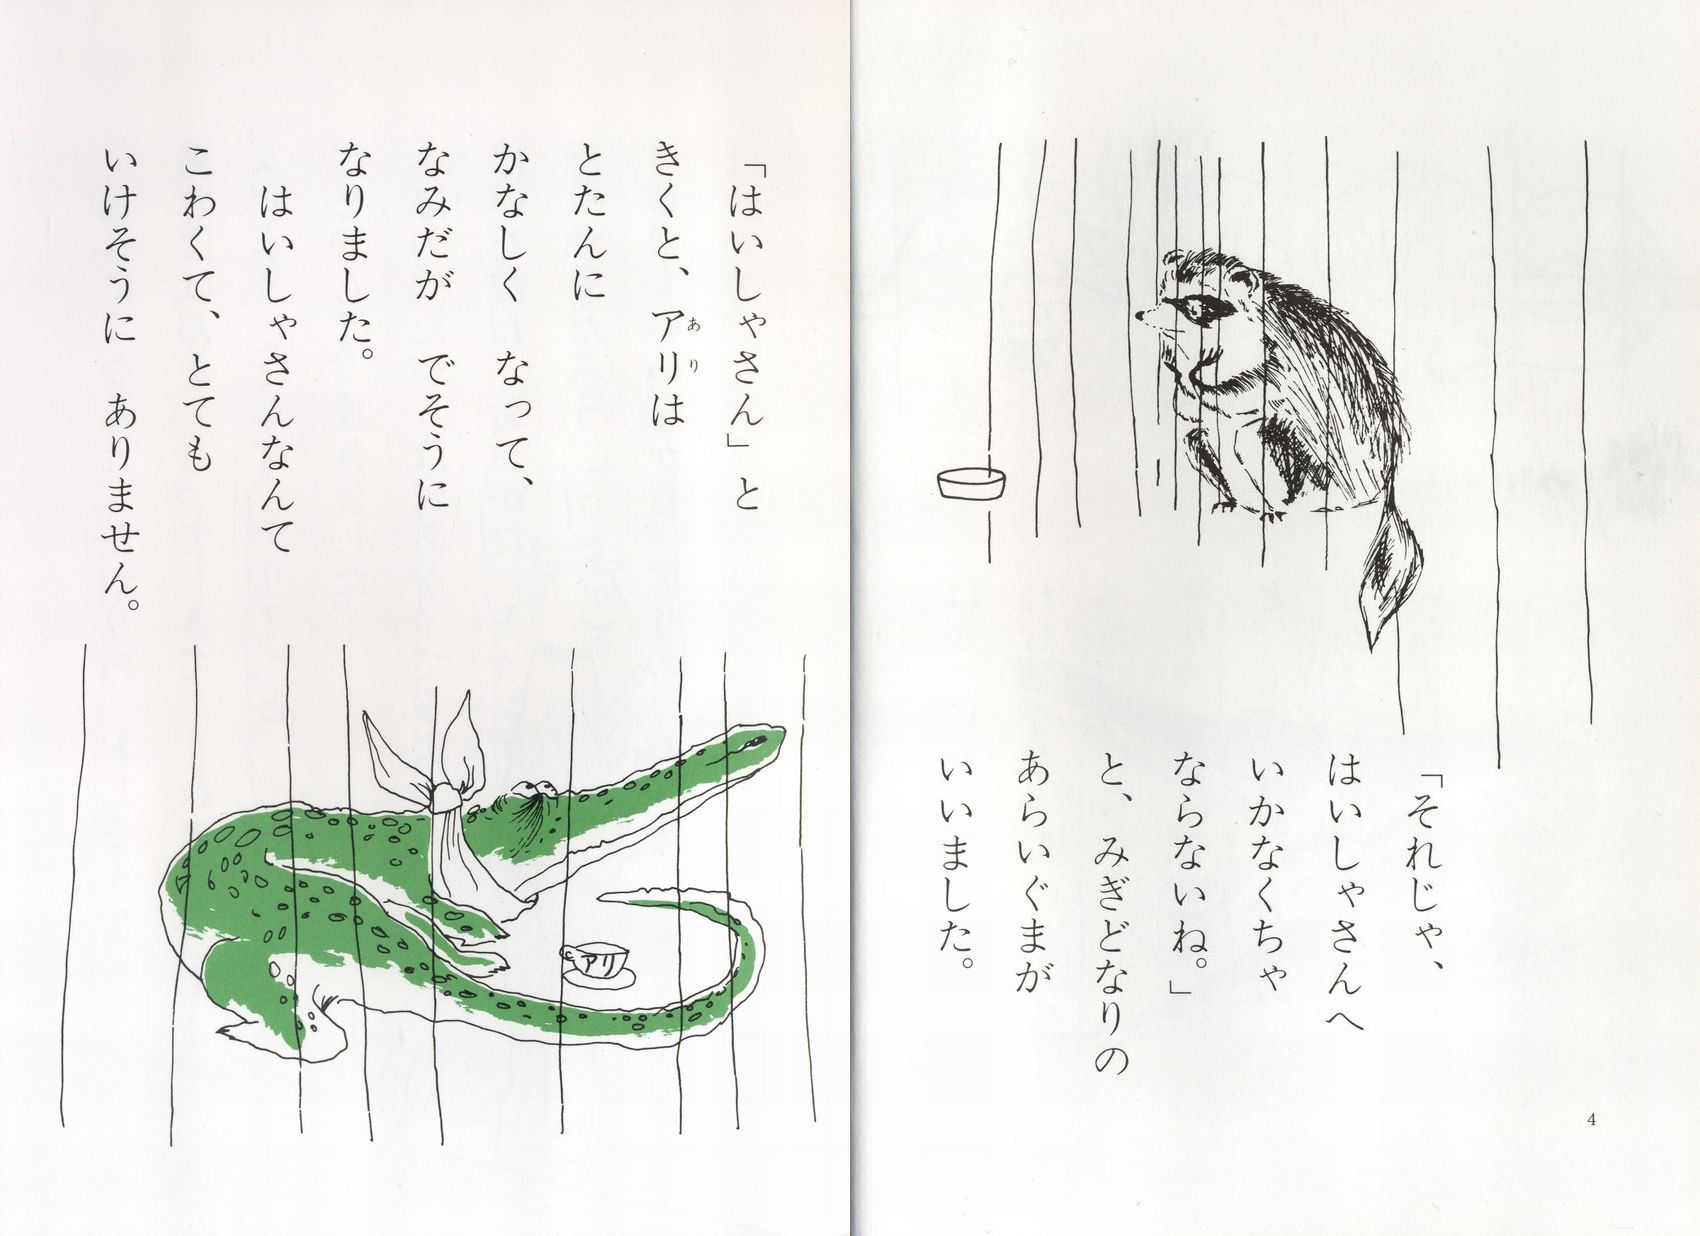 「それじゃ、
はいしゃさんへ
いかなくちゃ
ならないね。」
と、みぎどなりの
あらいぐまが
いいました。
4
「はいしゃさん」と
きくと、アリは
あり
とたんに
かなしく　なって、
なみだが　でそうに
なりました。
　はいしゃさんなんて
こわくて、とても
いけそうに　ありません。
アリ